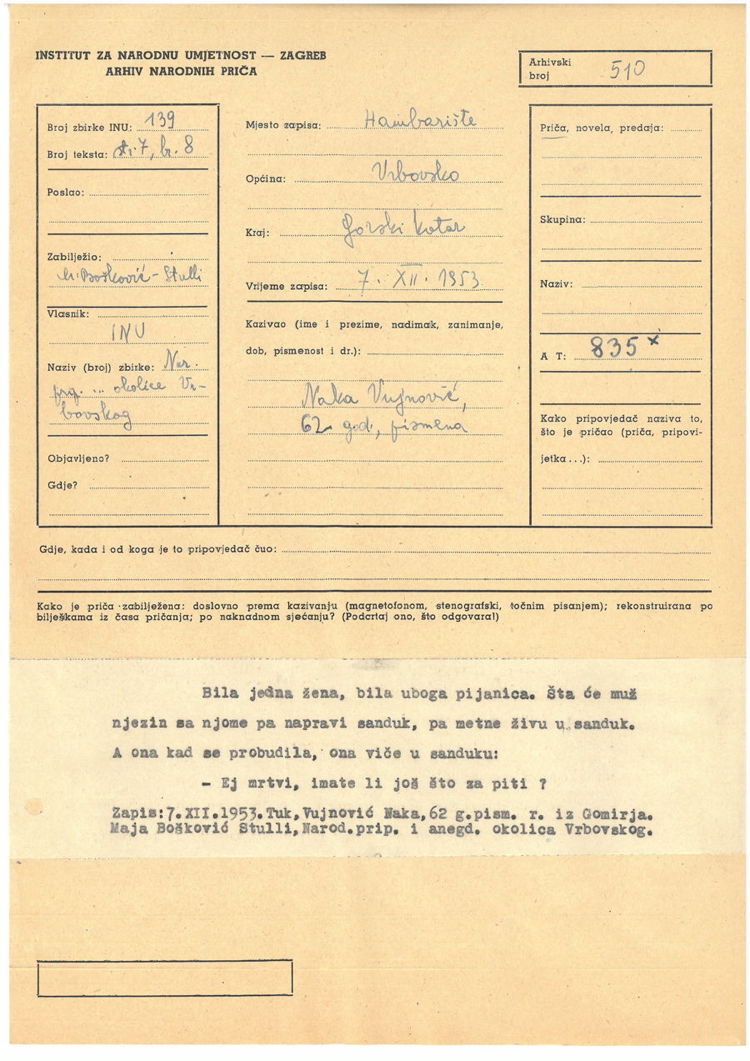 INSTITUT ZA NARODNU UMJETNOST — ZAGREB
ARHIV NARODNIH PRIČA
Arhivski
broj 510
Broj zbirke INU: 139
Broj teksta: 7, br. 8
Poslao:
Zabilježio:
M. Bošković-Stulli
Vlasnik:
INU
Naziv (broj) zbirke: Nar.
prip. ... okolice Vr-
bovskog
Objavljeno?
Gdje?
Mjesto zapisa: Hambarište
Općina: Vrbovsko
Kraj: Gorski kotar
Vrijeme zapisa: 7. XII. 1953
Kazivao (ime i prezime, nadimak, zanimanje,
dob, pismenost i dr.):
Naka Vujnović,
62 god., pismena
Priča, novela, predaja:
Skupina:
Naziv:
A T: 835 x
Kako pripovjedač naziva to,
što je pričao (priča, pripovi-
jetka . . .):
Gdje, kada i od koga je to pripovjedač čuo:
Kako je priča zabilježena: doslovno prema kazivanju (magnetofonom, stenografski, točnim pisanjem); rekonstruirana po
bilješkama iz časa pričanja; po naknadnom sjećanju? (Podcrtaj ono, što odgovara!)
Bila jedna žena, bila uboga pijanica. Šta će muž
njezin sa njome pa napravi sanduk, pa metne živu u sanduk.
A ona kad se probudila, ona viče u sanduku:
- Ej mrtvi, imate li još što za piti ?
Zapis:7.XII.1953.Tuk,Vujnović Naka,62 g.pism. r. iz Gomirja.
Maja Bošković Stulli,Narod.prip. i anegd. okolica Vrbovskog.